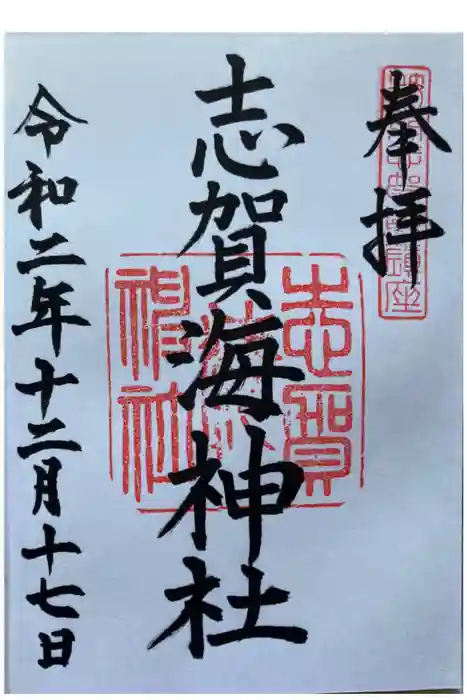 奉拝
志賀海神社
志賀海神社
令和二年十二月十七日